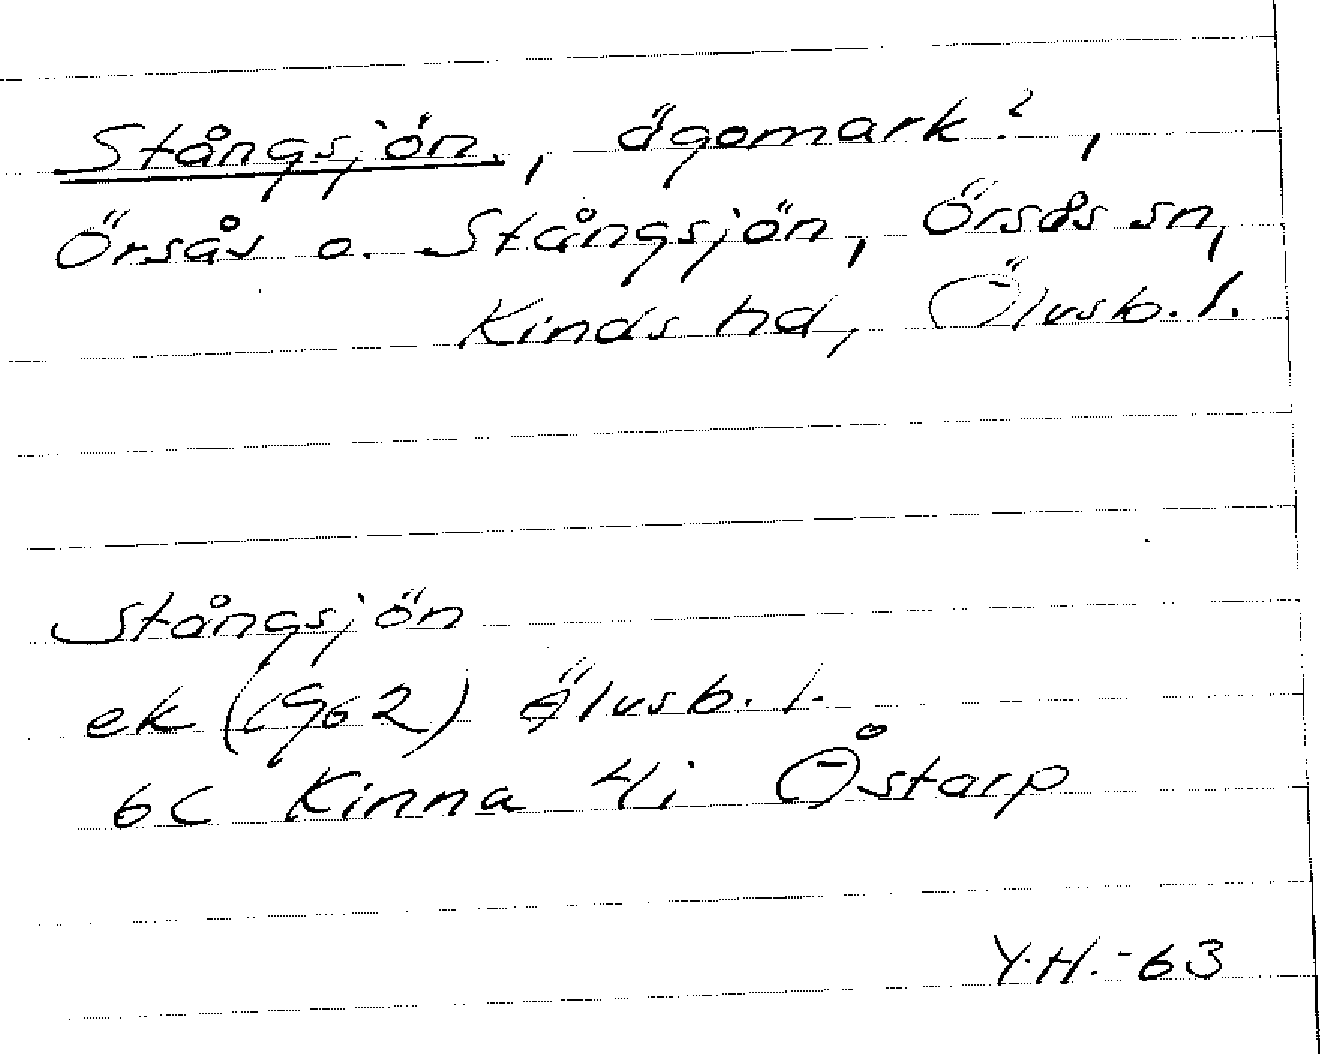 Stångsjön, ägomark?,
Örsås o. Stångsjön, Örsås sn,
Kinds hd, Älvsb. l.
Stångsjön
ek (1962) Älvsb. l.
6C Kinna 4i Åstarp
Y.H. -63